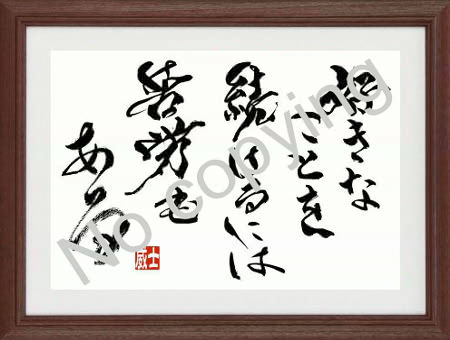 好きな
ことを
続けるには
苦労も
ある
威士
No copying